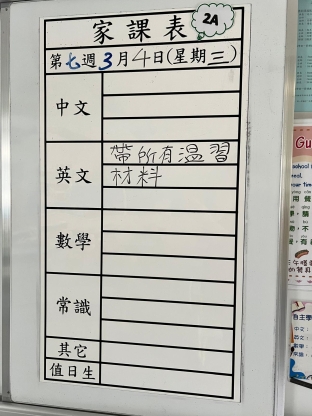 家課表
2A
第七週3月4日(星期三)
中文
英文
帶所有溫習
材料
數學
常識
其它
值日生